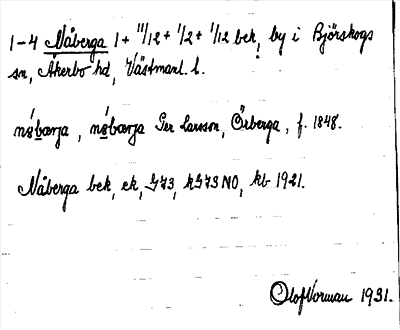 1-4 Nåberga 1 + 11/12 + 1/2 + 1/12 bek, by i Björskogs
sn, Åkerbo hd, Västmanl. l.
Per Larsson, Örberga, f. 1848.
Nåberga bek, ek, G73, kG73 NO, kb 1921.
Olof Norman 1931.